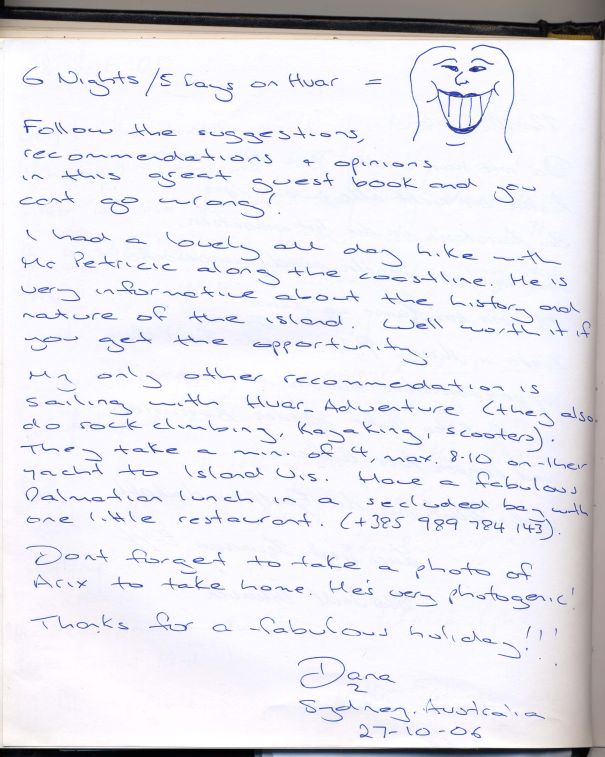 6 Nights/5 Days on Hvar =
Follow the suggestions,
recommendations + opinions
in this great guest book and you
cant go wrong!
I had a lovely all day hike with
Mr Petricic along the coastline. He is
very informative about the history and
nature of the island. Well worth it if
you get the opportunity.
My only other recommendation is
sailing with Hvar-Adventure (they also
do rock climbing, Kayaking, scooters).
They take a min. of 4, max. 8-10 on their
yacht to Island Vis. Have a fabulous
Dalmation lunch in a secluded bay with
one little restaurant. (+385 989 784 143).
Dont forget to take a photo of
Arix to take home. He's very photogenic!
Thanks for a fabulous holiday!!!
Dana
Sydney. Australia
27-10-06